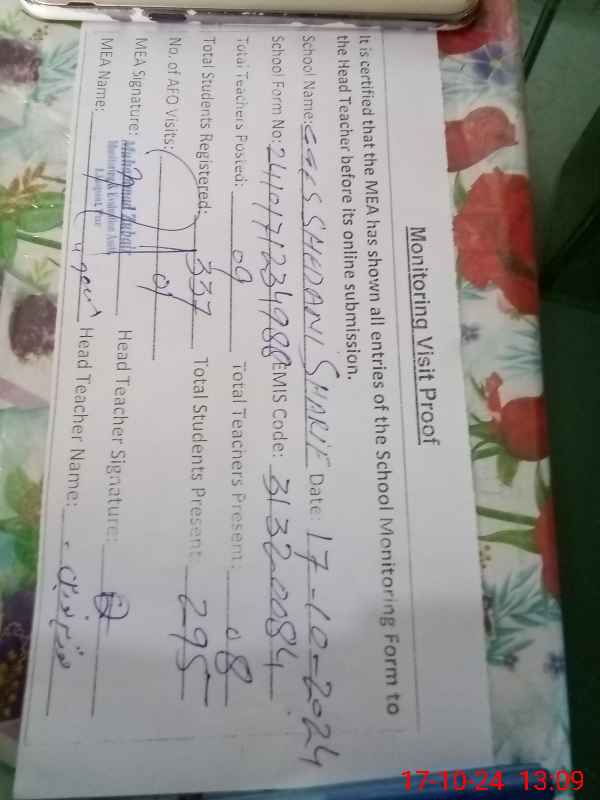 Monitoring Visit Proof
It is certified that the MEA has shown all entries of the School Monitoring Form to
the Head Teacher before its online submission.
School Name: GGES SAMDANI SHARIF Date: 17-10-2024
School Form No: 2410171234988 EMIS Code: 31320084
Total Teachers Posted: 09 Total Teachers Present: 08
Total Students Registered: 337 Total Students Present: 295
No. of AEO Visits: 01
MEA Signature: Muhammad Zubair Head Teacher Signature:
Monitoring & Evaluation Assistt
MEA Name: Head Teacher Name:
17-10-24 13:09